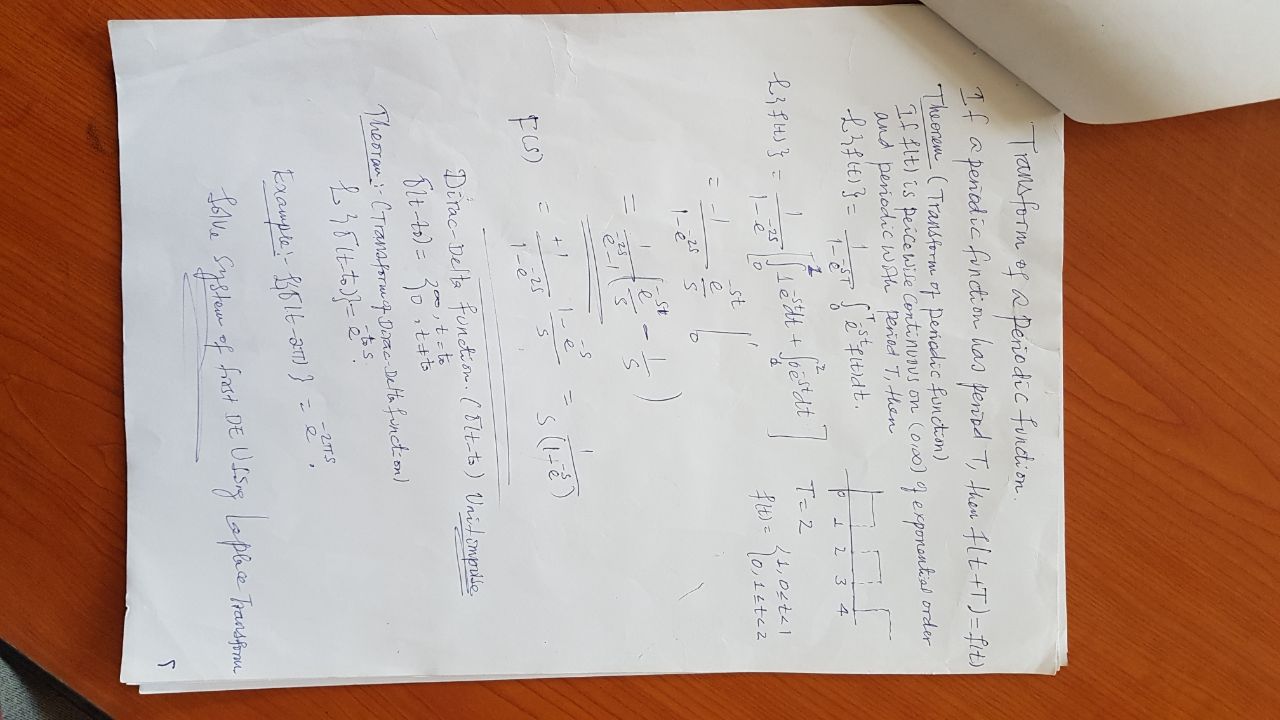 Transform of a periodic function.
If a periodic function has period T, then f(t+T) = f(t)
Theorem (Transform of periodic function)
If f(t) is peicewise continuous on (0,∞) of exponential order
and periodic with period T, then
L{f(t)} = 1/(1-e^{-sT}) ∫_0^T e^{-st} f(t)dt.
0 1 2 3 4
T = 2
f(t) = {1, 0≤t<1
{0, 1≤t<2
L{f(t)} = 1/(1-e^{-2s}) [∫_0^1 1 e^{-st}dt + ∫_1^2 0 e^{-st}dt]
= -1/(1-e^{-2s}) e^{-st}/s |_0^1
= 1/(e^{-2s}-1) (e^{-st}/s - 1/s)
F(s) = +1/(1-e^{-2s}) (1-e^{-s})/s = 1/(s(1+e^{-s}))
Dirac-Delta function. (δ(t-t0) Unit impulse
δ(t-t0) = {∞, t=t0
{0, t≠t0
Theoram:- (Transform of Dirac-Delta function)
L{δ(t-t0)} = e^{-t0s}.
Example:- L{δ(t-2π)} = e^{-2πs}.
Solve system of first DE Using Laplace Transform
5